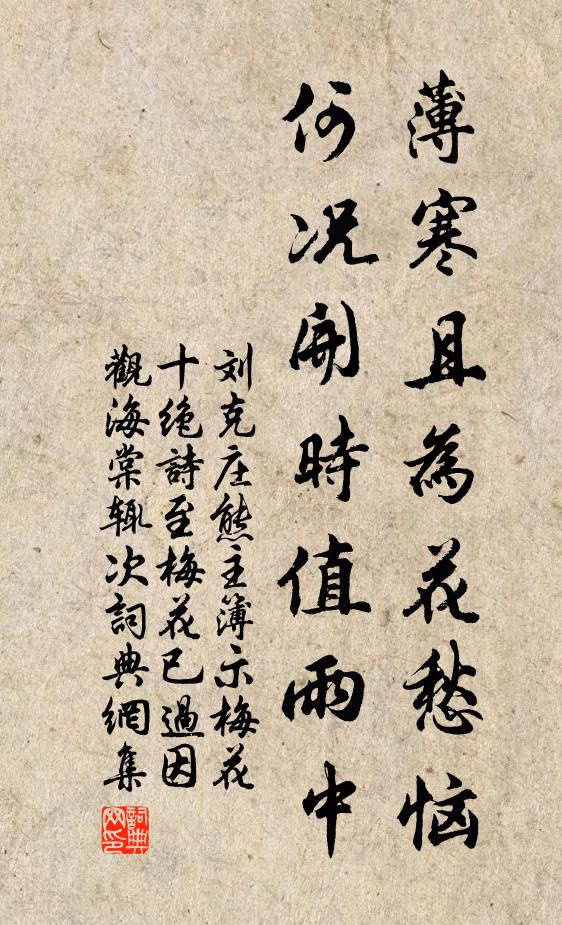 薄寒且為花愁恼
何况開時值雨中
刘克庄熊主簿示梅花
十绝詩至梅花已過因
觀海棠辄次詞典網集
詞典
网印